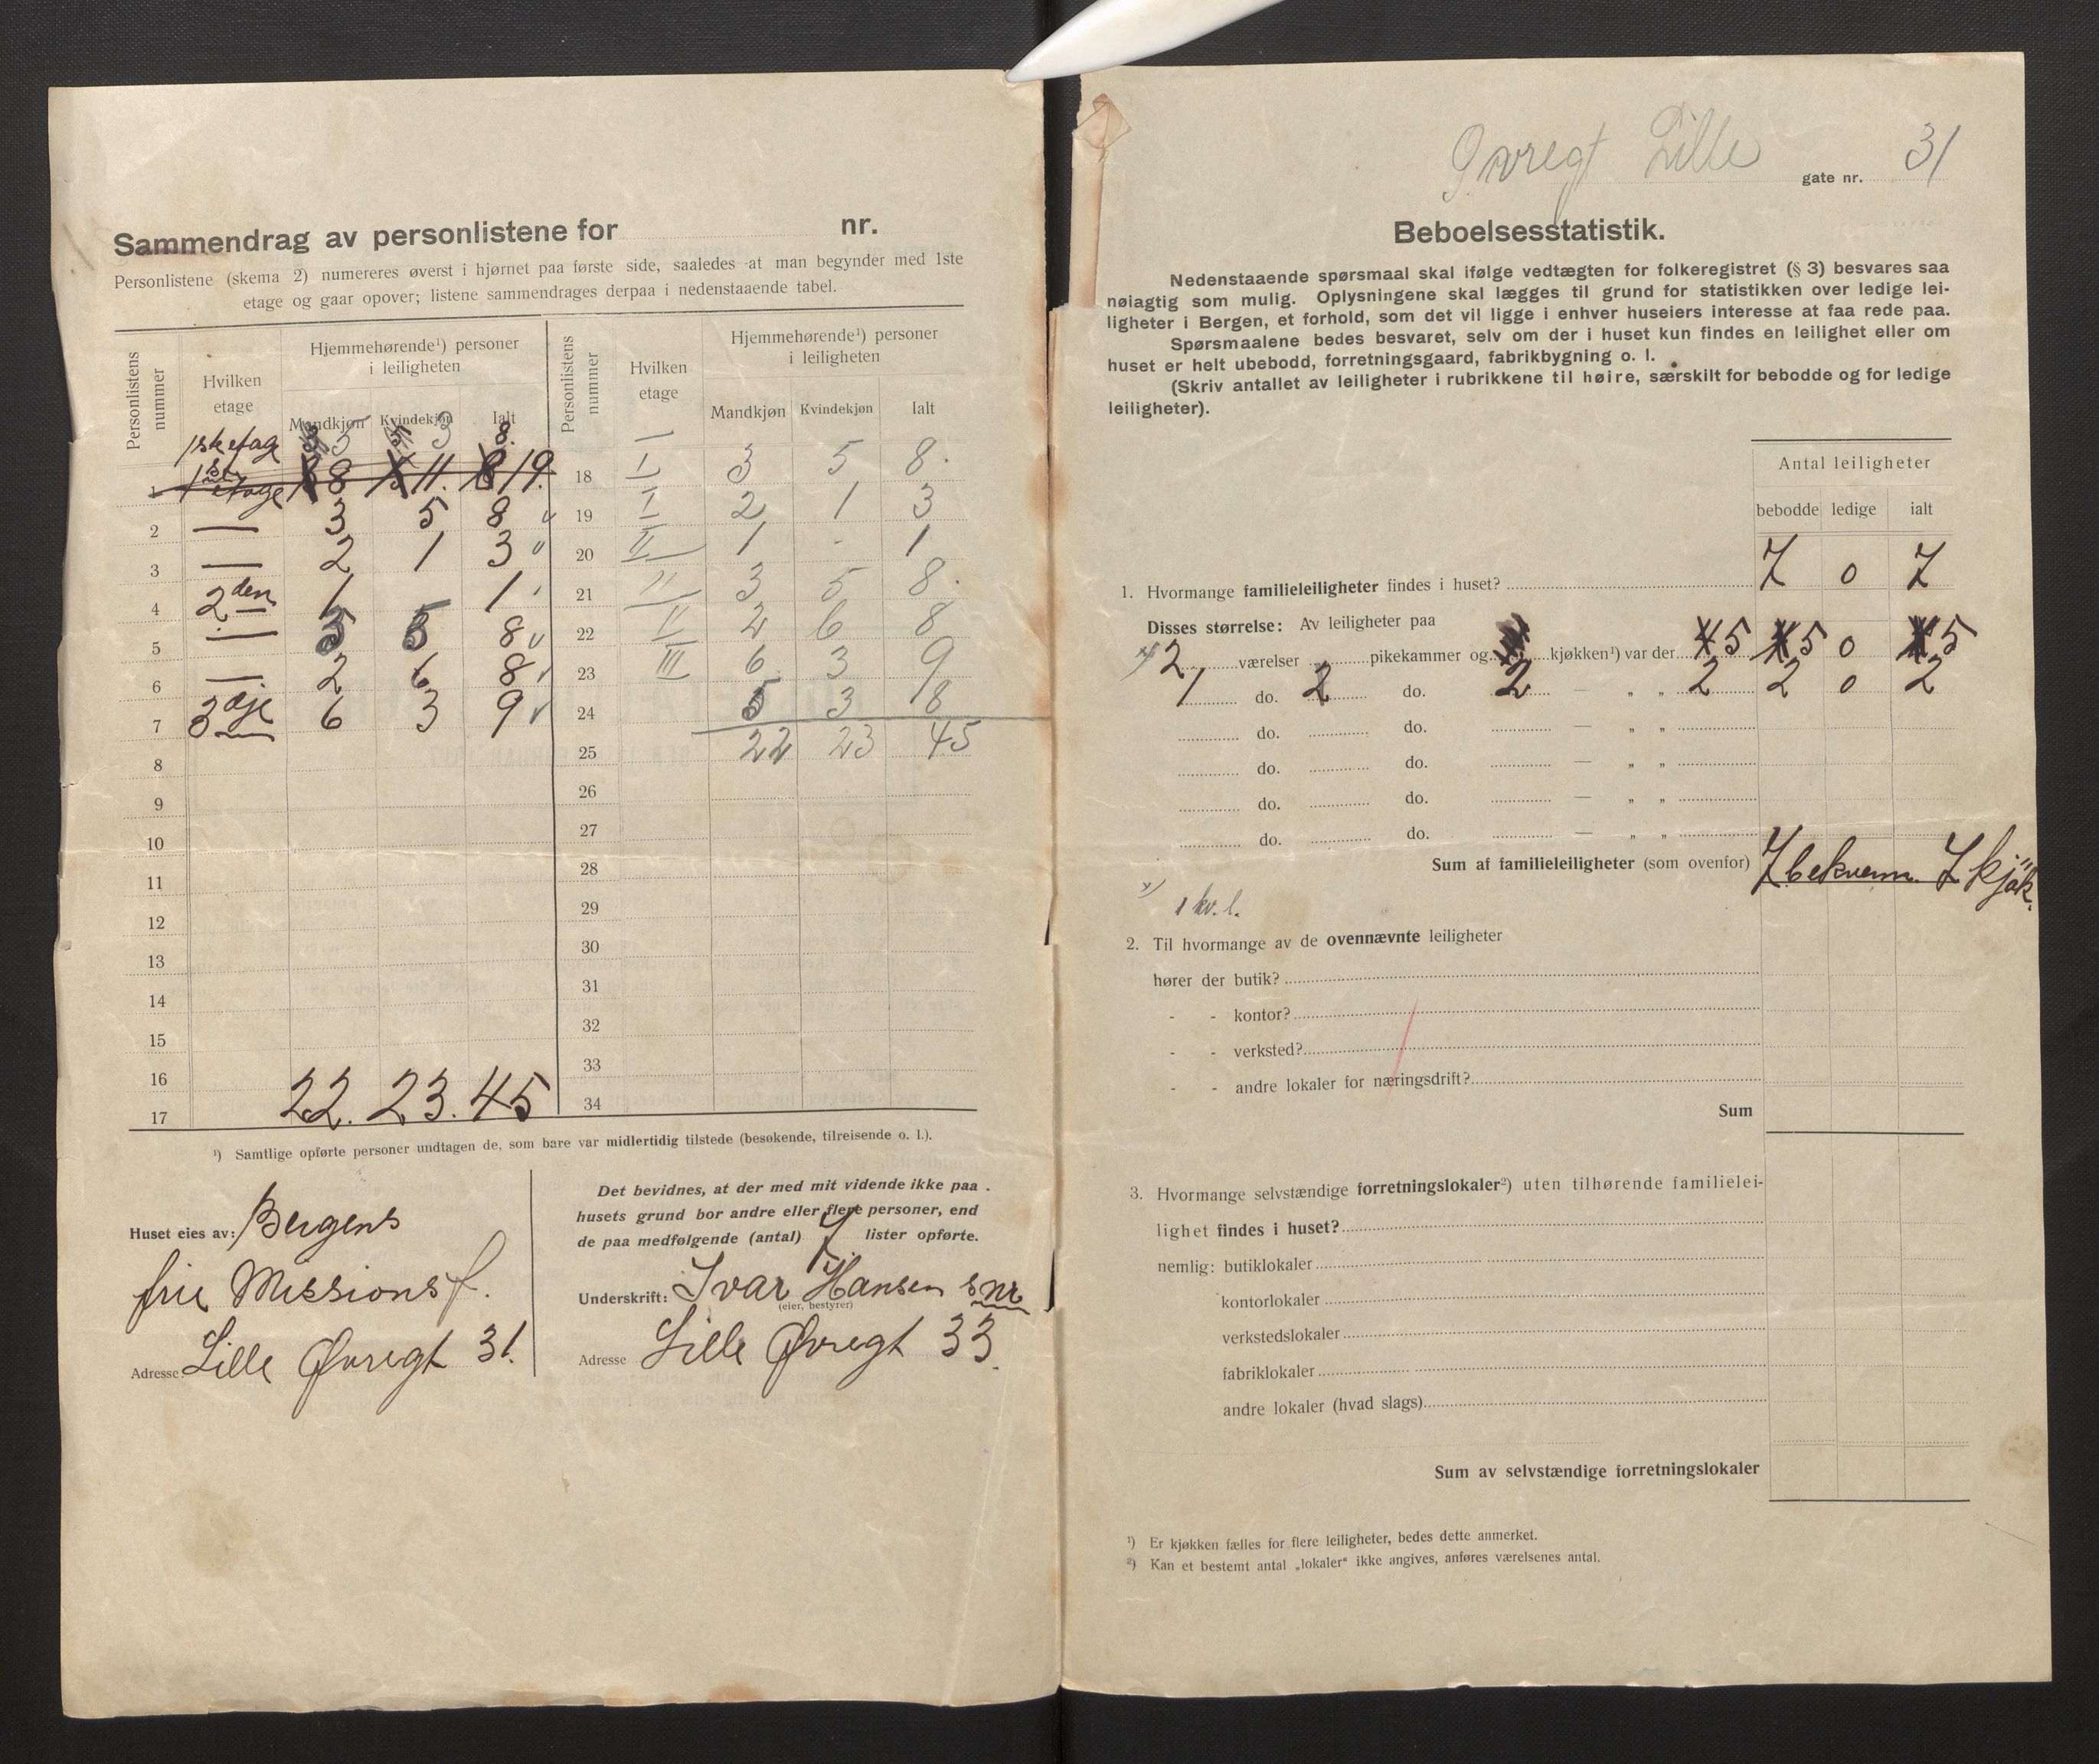 Sammendrag av personlistene for nr.
Personlistene (skema 2) numereres øverst i hjørnet paa første side, saaledes at man begynder med 1ste
etage og gaar opover; listene sammendrages derpaa i nedenstaaende tabel.
Personlistens nummer
Hvilken etage
Hjemmehørende¹) personer i leiligheten
Mandkjøn Kvindekjøn Ialt
Personlistens nummer
Hvilken etage
Hjemmehørende¹) personer i leiligheten
Mandkjøn Kvindekjøn Ialt
1ste etage 3 8.
1 1ste etage 8 11. 19.
2 — 3 5 8
3 — 2 1 3
4 2den 1 1
5 — 3 5 8
6 — 2 6 8
7 3dje 6 3 9
8
9
10
11
12
13
14
15
16
17 22. 23. 45
18 I 3 5 8.
19 I 2 1 3
20 II 1 - 1
21 II 3 5 8.
22 II 2 6 8
23 III 6 3 9
24 5 3 8
25 22 23 45
26
27
28
29
30
31
32
33
34
¹) Samtlige opførte personer undtagen de, som bare var midlertidig tilstede (besøkende, tilreisende o. l.).
Huset eies av: Bergens
frie Missionsf.
Adresse: Lille Øvregt 31.
Det bevidnes, at der med mit vidende ikke paa
husets grund bor andre eller flere personer, end
de paa medfølgende (antal) 7 lister opførte.
Underskrift: Ivar Hansen snr
(eier, bestyrer)
Adresse Lille Øvregt 33.
Øvregt Lille gate nr. 31
Beboelsesstatistik.
Nedenstaaende spørsmaal skal ifølge vedtægten for folkeregistret (§ 3) besvares saa
nøiagtig som mulig. Oplysningene skal lægges til grund for statistikken over ledige lei-
ligheter i Bergen, et forhold, som det vil ligge i enhver huseiers interesse at faa rede paa.
Spørsmaalene bedes besvaret, selv om der i huset kun findes en leilighet eller om
huset er helt ubebodd, forretningsgaard, fabrikbygning o. l.
(Skriv antallet av leiligheter i rubrikkene til høire, særskilt for bebodde og for ledige
leiligheter).
Antal leiligheter
bebodde ledige ialt
1. Hvormange familieleiligheter findes i huset? 7 0 7
Disses størrelse: Av leiligheter paa
x) 2 værelser pikekammer og kjøkken¹) var der 5 5 0 5
1 do. 2 do. 2 — „ „ 2 2 0 2
do. do. — „ „
do. do. — „ „
do. do. — „ „
do. do. — „ „
Sum af familieleiligheter (som ovenfor) 7 bekvem. 7 kjøk.
x) 1 kv. l.
2. Til hvormange av de ovennævnte leiligheter
hører der butik?
- - kontor?
- - verksted?
- - andre lokaler for næringsdrift?
Sum
3. Hvormange selvstændige forretningslokaler²) uten tilhørende familielei-
lighet findes i huset?
nemlig: butiklokaler
kontorlokaler
verkstedslokaler
fabriklokaler
andre lokaler (hvad slags)
Sum av selvstændige forretningslokaler
¹) Er kjøkken fælles for flere leiligheter, bedes dette anmerket.
²) Kan et bestemt antal „lokaler“ ikke angives, anføres værelsenes antal.